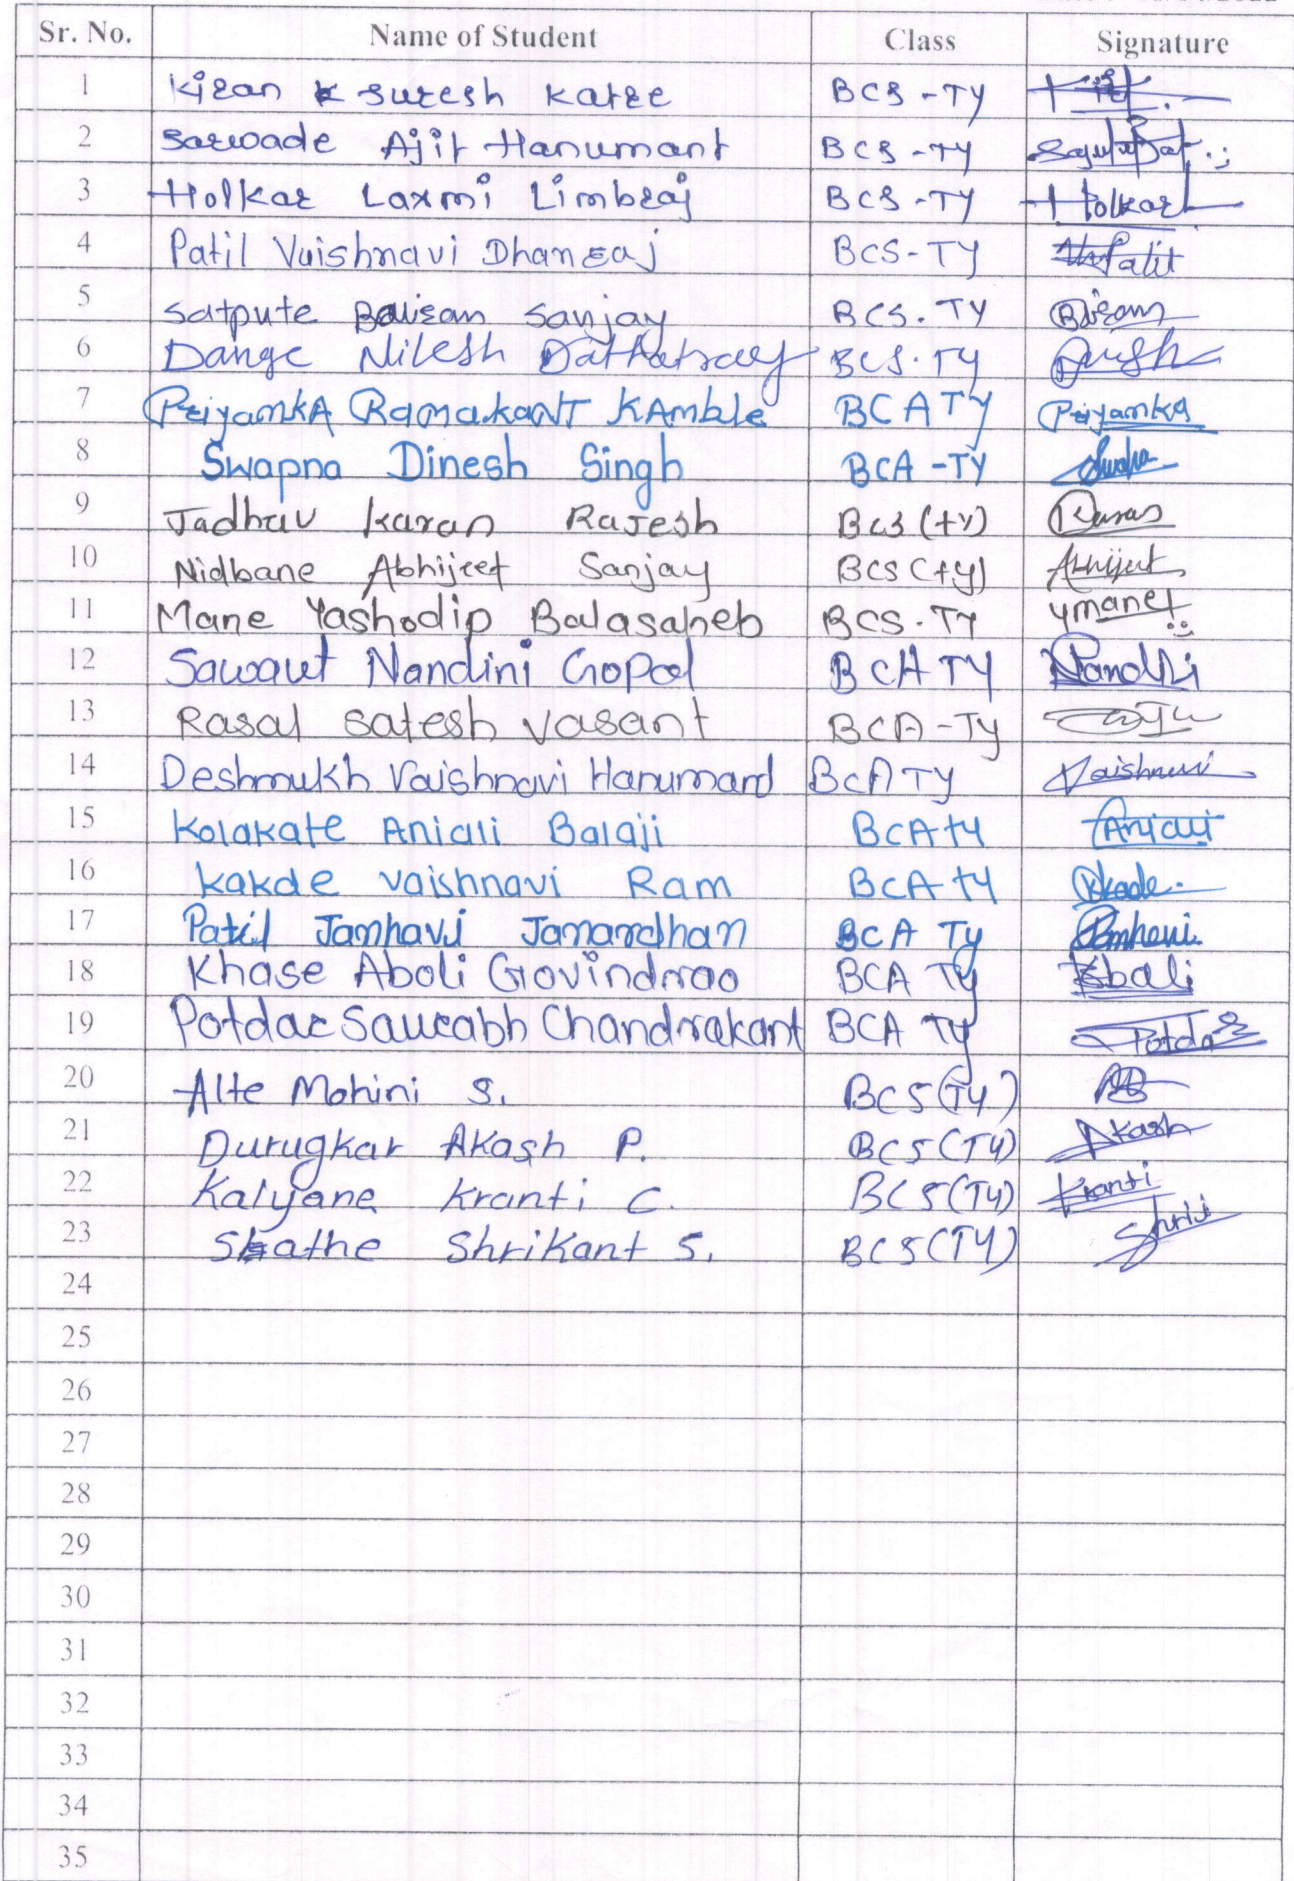 Sr. No. Name of Student Class Signature
1 Kiran K Suresh Katre BCS - TY
2 Sarwade Ajit Hanumant BCS - TY
3 Holkar Laxmi Limbraj BCS - TY Holkar
4 Patil Vaishnavi Dhanraj BCS - TY Patil
5 Satpute Baisan Sanjay BCS. TY
6 Dange Nilesh Dattatray BCS. TY
7 PriyamkA RamakaNT KAmble BCA TY Priyamka
8 Swapna Dinesh Singh BCA - TY
9 Jadhav Karan Rajesh BCS (TY) Karan
10 Nidbane Abhijeet Sanjay BCS (ty) Abhijeet
11 Mane Yashodip Balasaheb BCS. TY ymane
12 Sawant Nandini Gopal BCA TY Nandini
13 Rasal Satesh Vasant BCA - Ty
14 Deshmukh Vaishnavi Hanumant BCA TY Vaishnavi
15 Kolakate Aniali Balaji BCA ty Aniali
16 kakde vaishnavi Ram BCA ty
17 Patil Janhavi Janardhan BCA Ty
18 Khase Aboli Govindrao BCA Ty
19 Potdar Saurabh Chandrakant BCA TY Potdar
20 Alte Mohini S. BCS (TY)
21 Durugkar Akash P. BCS (TY) Akash
22 Kalyane Kranti C. BCS (TY) Kranti
23 Sathe Shrikant S. BCS (TY)
24
25
26
27
28
29
30
31
32
33
34
35